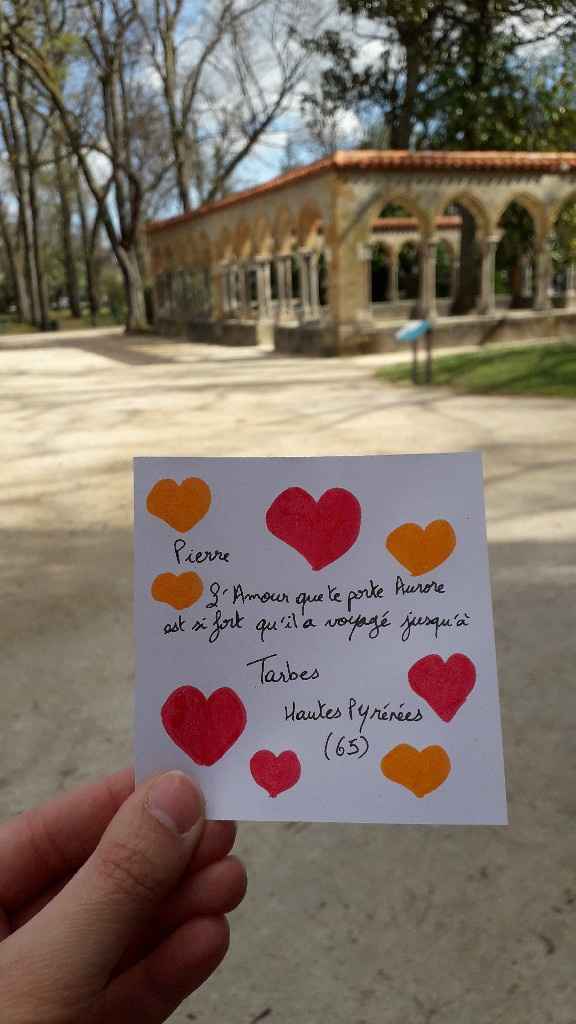 Pierre
L'Amour que te porte Aurore
est si fort qu'il a voyagé jusqu'à
Tarbes
Hautes Pyrénées
(65)